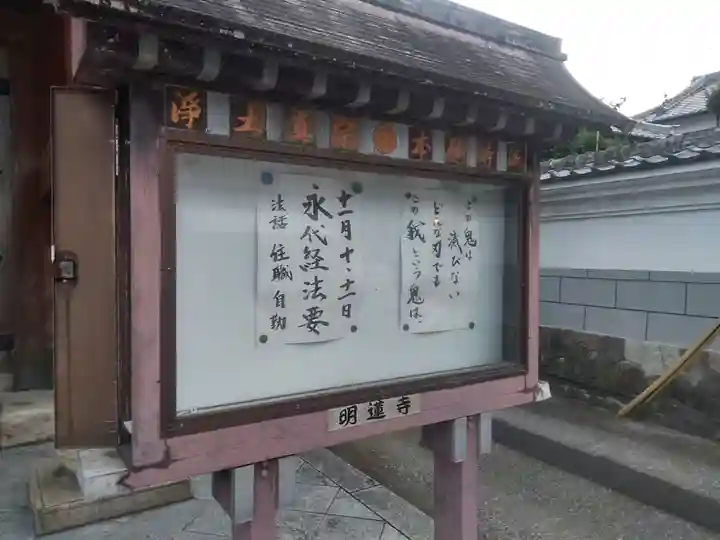 浄土真宗 本願寺派
どの鬼は
滅びない
どんな刃でも
この我という鬼は、
十一月十、十一日
永代経法要
法話 住職自勤
明蓮寺